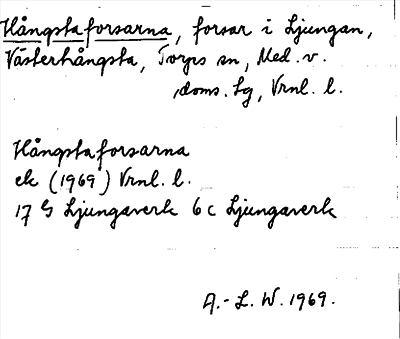 Hångstaforsarna, forsar i Ljungan,
Västerhångsta, Torps sn, Med. v.
doms. lg, Vrnl. l.
Hångstaforsarna
ek (1969) Vrnl. l.
17 G Ljungaverk 6 c Ljungaverk
A.-L. W. 1969.